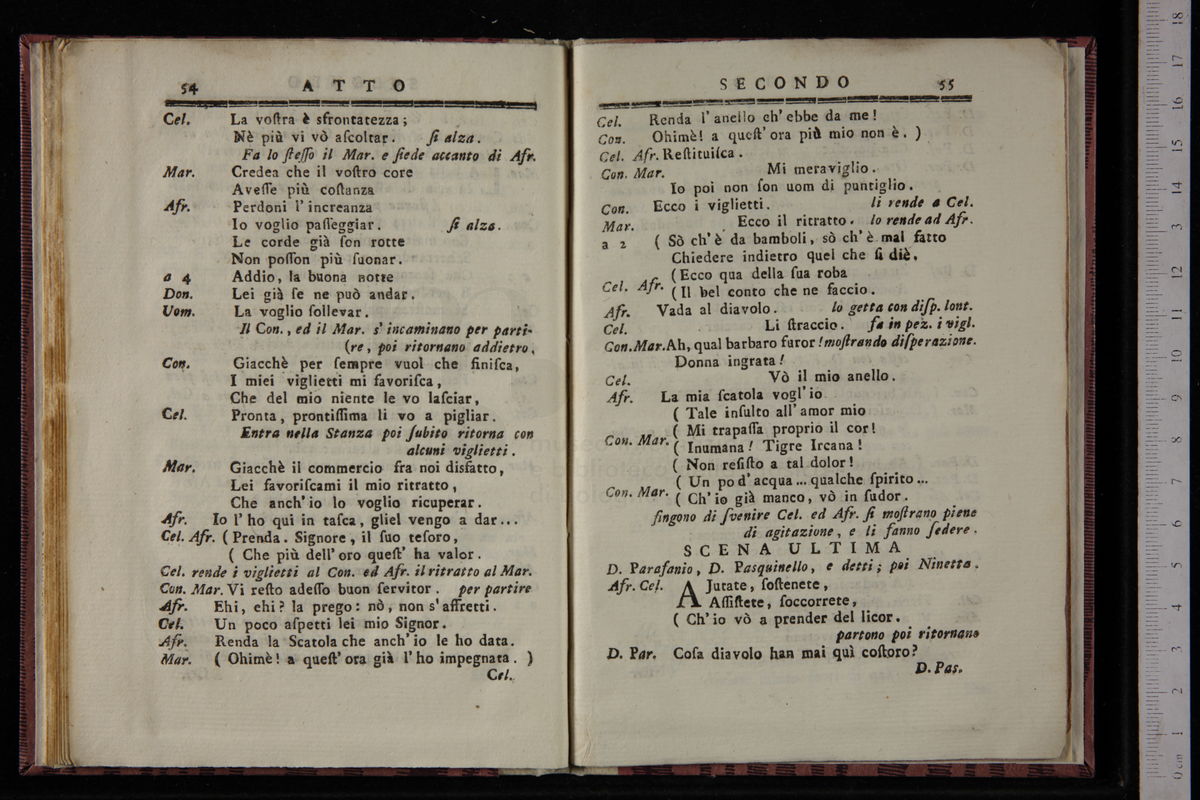 54 ATTO
Cel. La voſtra è sfrontatezza;
Nè più vi vò aſcoltar. ſi alza.
Fa lo ſteſſo il Mar. e ſiede accanto di Afr.
Mar. Credea che il voſtro core
Aveſſe più coſtanza
Afr. Perdoni l'increanza
Io voglio paſſeggiar. ſi alza.
Le corde già ſon rotte
Non poſſon più ſuonar.
a 4 Addio, la buona notte
Don. Lei già ſe ne può andar.
Uom. La voglio ſollevar.
Il Con., ed il Mar. s'incaminano per parti-
(re, poi ritornano addietro.
Con. Giacchè per ſempre vuol che finiſca,
I miei viglietti mi favoriſca,
Che del mio niente le vo laſciar,
Cel. Pronta, prontiſſima li vo a pigliar.
Entra nella Stanza poi ſubito ritorna con
alcuni viglietti.
Mar. Giacchè il commercio fra noi disfatto,
Lei favoriſcami il mio ritratto,
Che anch'io lo voglio ricuperar.
Afr. Io l'ho qui in taſca, gliel vengo a dar...
Cel. Afr. ( Prenda. Signore, il ſuo teſoro,
( Che più dell'oro queſt' ha valor.
Cel. rende i viglietti al Con. ed Afr. il ritratto al Mar.
Con. Mar. Vi reſto adeſſo buon ſervitor. per partire
Afr. Ehi, ehi? la prego: nò, non s'affretti.
Cel. Un poco aſpetti lei mio Signor.
Afr. Renda la Scatola che anch'io le ho data.
Mar. ( Ohimè! a queſt'ora già l'ho impegnata. )
Cel.
SECONDO 55
Cel. Renda l'anello ch'ebbe da me!
Con. Ohimè! a queſt'ora più mio non è. )
Cel. Afr. Reſtituiſca.
Con. Mar. Mi meraviglio.
Io poi non ſon uom di puntiglio.
Con. Ecco i viglietti. li rende a Cel.
Mar. Ecco il ritratto. lo rende ad Afr.
a 2 ( Sò ch'è da bamboli, sò ch'è mal fatto
Chiedere indietro quel che ſi diè.
(Ecco qua della ſua roba
Cel. Afr. (Il bel conto che ne faccio.
Afr. Vada al diavolo. lo getta con diſp. lont.
Cel. Li ſtraccio. fa in pez. i vigl.
Con. Mar. Ah, qual barbaro furor! moſtrando diſperazione.
Donna ingrata!
Cel. Vò il mio anello.
Afr. La mia ſcatola vogl'io
( Tale inſulto all'amor mio
( Mi trapaſſa proprio il cor!
Con. Mar. ( Inumana! Tigre Ircana!
( Non reſiſto a tal dolor!
( Un po d'acqua... qualche ſpirito...
Con. Mar. ( Ch'io già manco, vò in ſudor.
fingono di ſvenire Cel. ed Afr. ſi moſtrano piene
di agitazione, e li fanno ſedere.
SCENA ULTIMA
D. Parafanio, D. Pasquinello, e detti; poi Ninetta.
Afr. Cel. AJutate, ſoſtenete,
Aſſiſtete, ſoccorrete,
( Ch'io vò a prender del licor.
partono poi ritornano
D. Par. Coſa diavolo han mai quì coſtoro?
D. Pas.